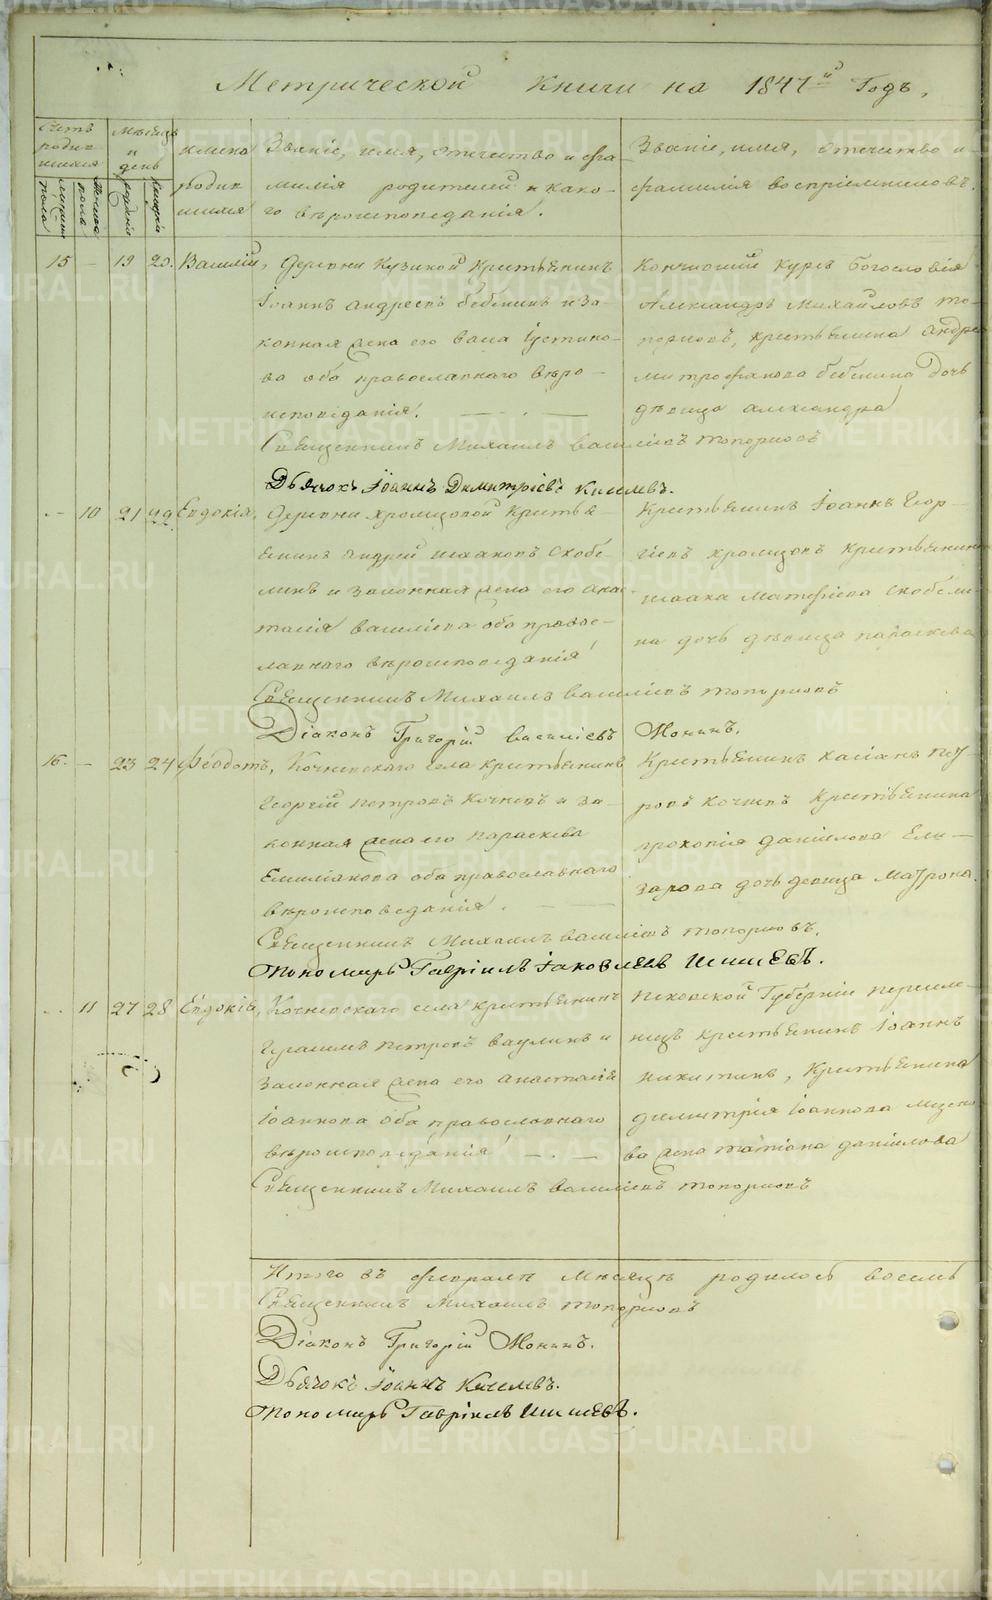 Метрической Книги на 1847й Годъ.
Счетъ родившихся
мужеска пола
женска пола
Мѣсяцъ и день
рожденія
крещенія
имена родившихся
Званіе, имя, отечество и фамилія родителей и какого вѣроисповеданія.
Званіе, имя, отечество и фамилія воспріемниковъ.
15 — 19 20. Василій,
Деревни Кузиной Крестьянинъ
Іоаннъ Андреевъ Бабкинъ и законная жена его Устинова оба православнаго вѣроисповѣданія.
Кончившій Курсъ Богословія
Александръ Михайловъ Топорковъ, крестьянина Андрея
Митрофанова дочь
дѣвица Александра
Священникъ Михаилъ Василіевъ Топорковъ
Дьячокъ Іоаннъ Димитріевъ Киселевъ.
— 10 21 22 Евдокія,
Деревни Хромцовой Крестьянинъ Андрей Исааковъ Скобелинъ и законная жена его Анастасія Василіева оба православнаго вѣроисповеданія
Крестьянинъ Іоаннъ Георгіевъ Хромцовъ Крестьянина
Исаака Матфіева Скобелина дочь дѣвица Параскева
Священникъ Михаилъ Василіевъ Топорковъ
Діаконъ Григорій Василіевъ Монинъ.
16. — 23 24 Ѳеодотъ,
Кочневскаго села крестьянинъ
Георгій Петровъ Кочневъ и законная жена его Параскева
Емиліанова оба православнаго
вѣроисповеданія.
Крестьянинъ Касіанъ Петровъ Кочневъ Крестьянина
Прокопія Даніилова Елизарова дочь девица Матрона.
Священникъ Михаилъ Василіевъ Топорковъ.
Пономарь Гавріилъ Іаковлевъ Шишевъ.
— 11 27 28 Евдокія,
Кочневскаго села крестьянинъ
Герасимъ Петровъ Ваулинъ и
законная жена его Анастасія
Іоаннова оба православнаго
вѣроисповеданія
Псковской Губерніи переселенецъ Крестьянинъ Іоаннъ
Никитинъ, Крестьянина
Димитрія Іоаннова
жена Татіана Даніилова
Священникъ Михаилъ Василіевъ Топорковъ
Итого въ февралѣ Мѣсяцѣ родилось восемь
Священникъ Михаилъ Топорковъ
Діаконъ Григорій Монинъ.
Дьячокъ Іоаннъ Киселевъ.
Пономарь Гавріилъ Шишевъ.
METRIKI.GASO-URAL.RU